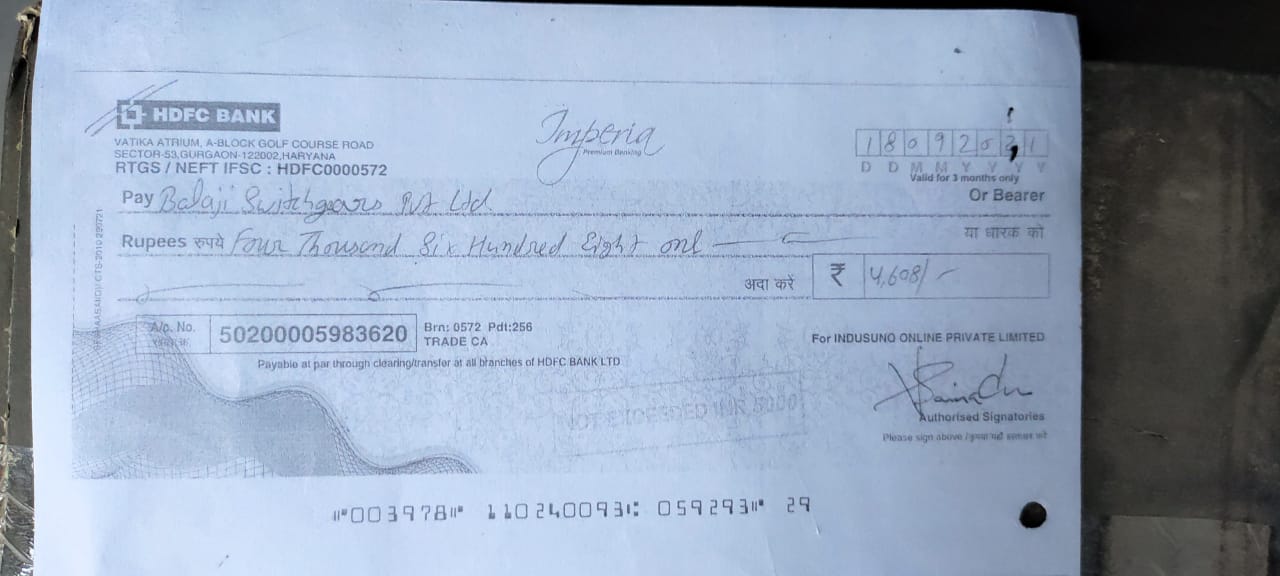 HDFC BANK
Imperia
Premium Banking
VATIKA ATRIUM, A-BLOCK GOLF COURSE ROAD
SECTOR-53,GURGAON-122002,HARYANA
RTGS / NEFT IFSC : HDFC0000572
18092021
D D M M Y Y Y Y
Valid for 3 months only
Pay Balaji Switchgears Pvt Ltd. Or Bearer
Rupees रुपये Four Thousand Six Hundred Eight onl या धारक को
अदा करें ₹ 4,608/-
A/c. No. 50200005983620
Brn: 0572 Pdt:256
TRADE CA
Payable at par through clearing/transfer at all branches of HDFC BANK LTD
For INDUSUNO ONLINE PRIVATE LIMITED
NOT EXCEEDED INR 5000
Authorised Signatories
Please sign above /
⑈003978⑈ 110240093⑆ 059293⑈ 29